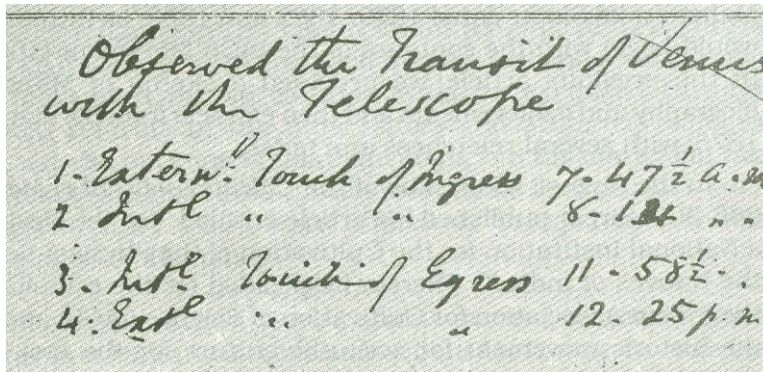 Observed the Transit of Venus
with the Telescope
1. Extern.l Touch of Ingress 7 - 47½ a.m
2 Intl " " 8 - " "
3. Intl Touch of Egress 11 - 58½ -
4. Extl " " 12 - 25 p.m